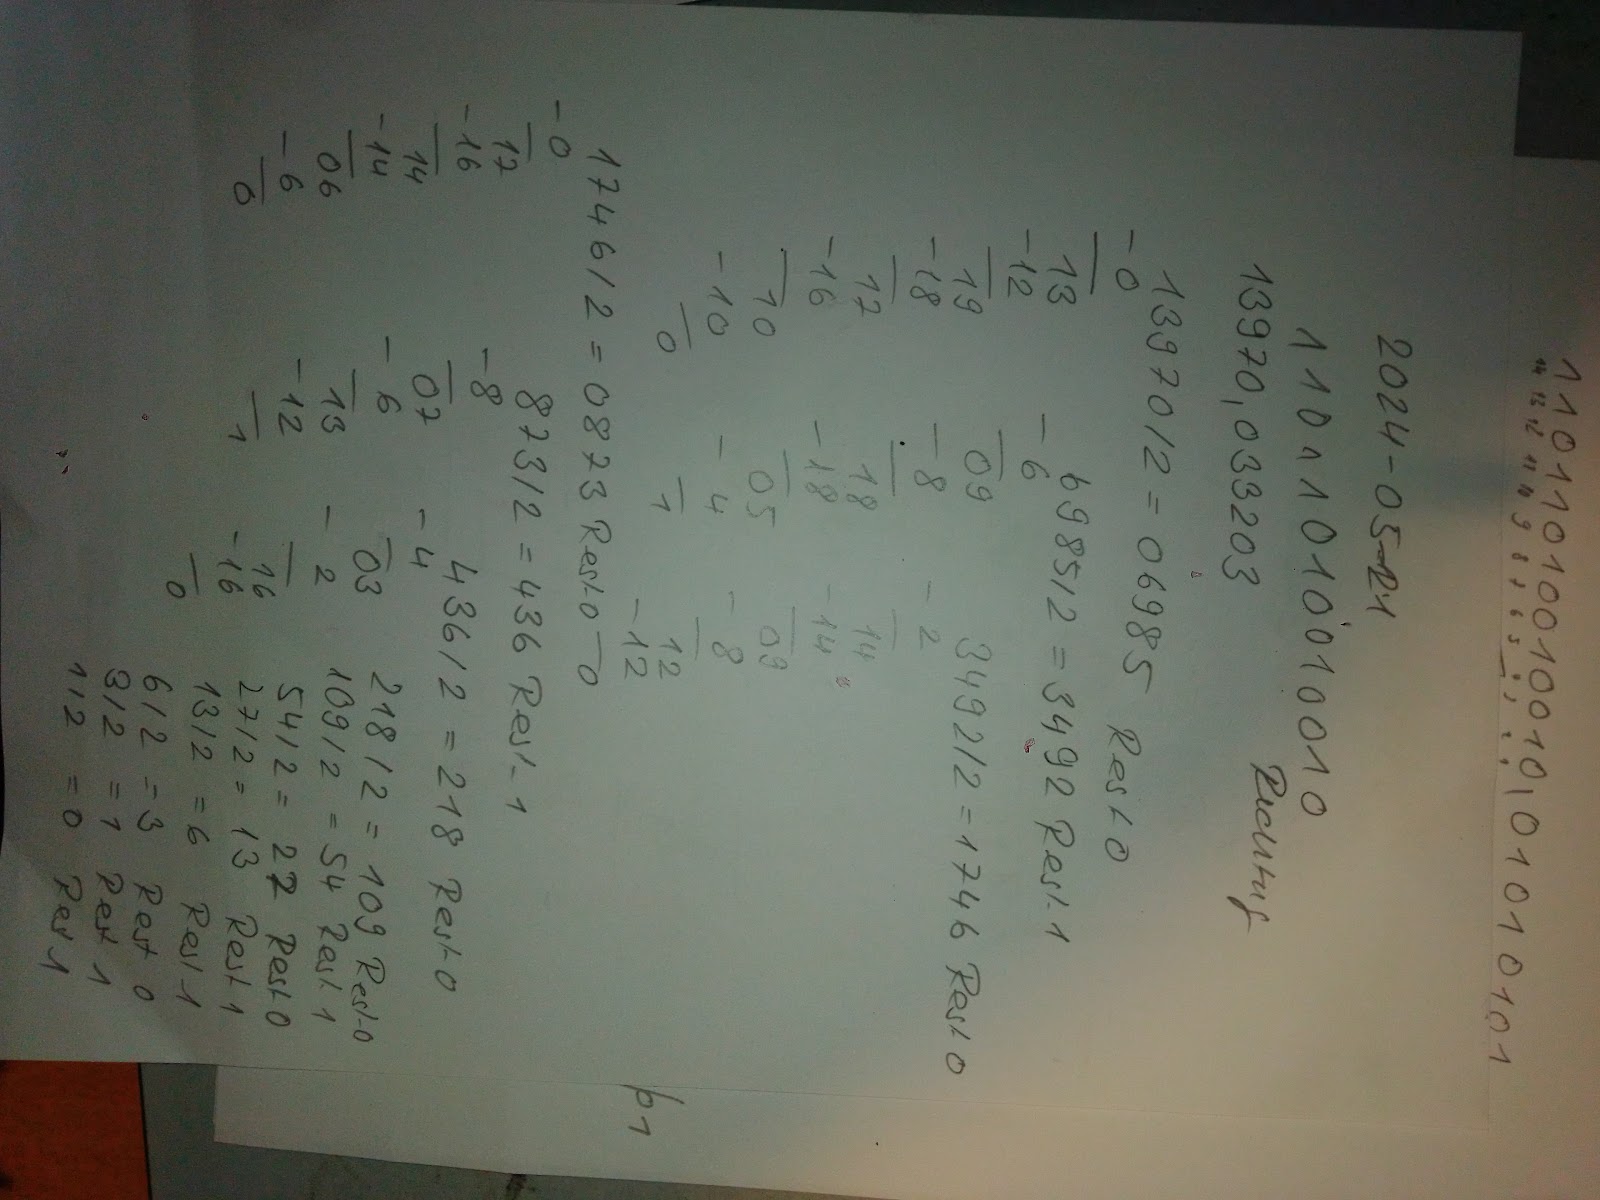 2024-05-21
11011010010010
13970,033203
13970/2 = 06985 Rest 0
-0
13
-12
19
-18
17
-16
10
-10
0
6985/2 = 3492 Rest 1
-6
09
-8
18
-18
05
-4
1
3492/2 = 1746 Rest 0
-2
14
-14
09
-8
12
-12
0
1746/2 = 0873 Rest 0
-0
17
-16
14
-14
06
-6
0
873/2 = 436 Rest 1
-8
07
-6
13
-12
1
436/2 = 218 Rest 0
-4
03
-2
16
-16
0
218/2 = 109 Rest 0
109/2 = 54 Rest 1
54/2 = 27 Rest 0
27/2 = 13 Rest 1
13/2 = 6 Rest 1
6/2 = 3 Rest 0
3/2 = 1 Rest 1
1/2 = 0 Rest 1